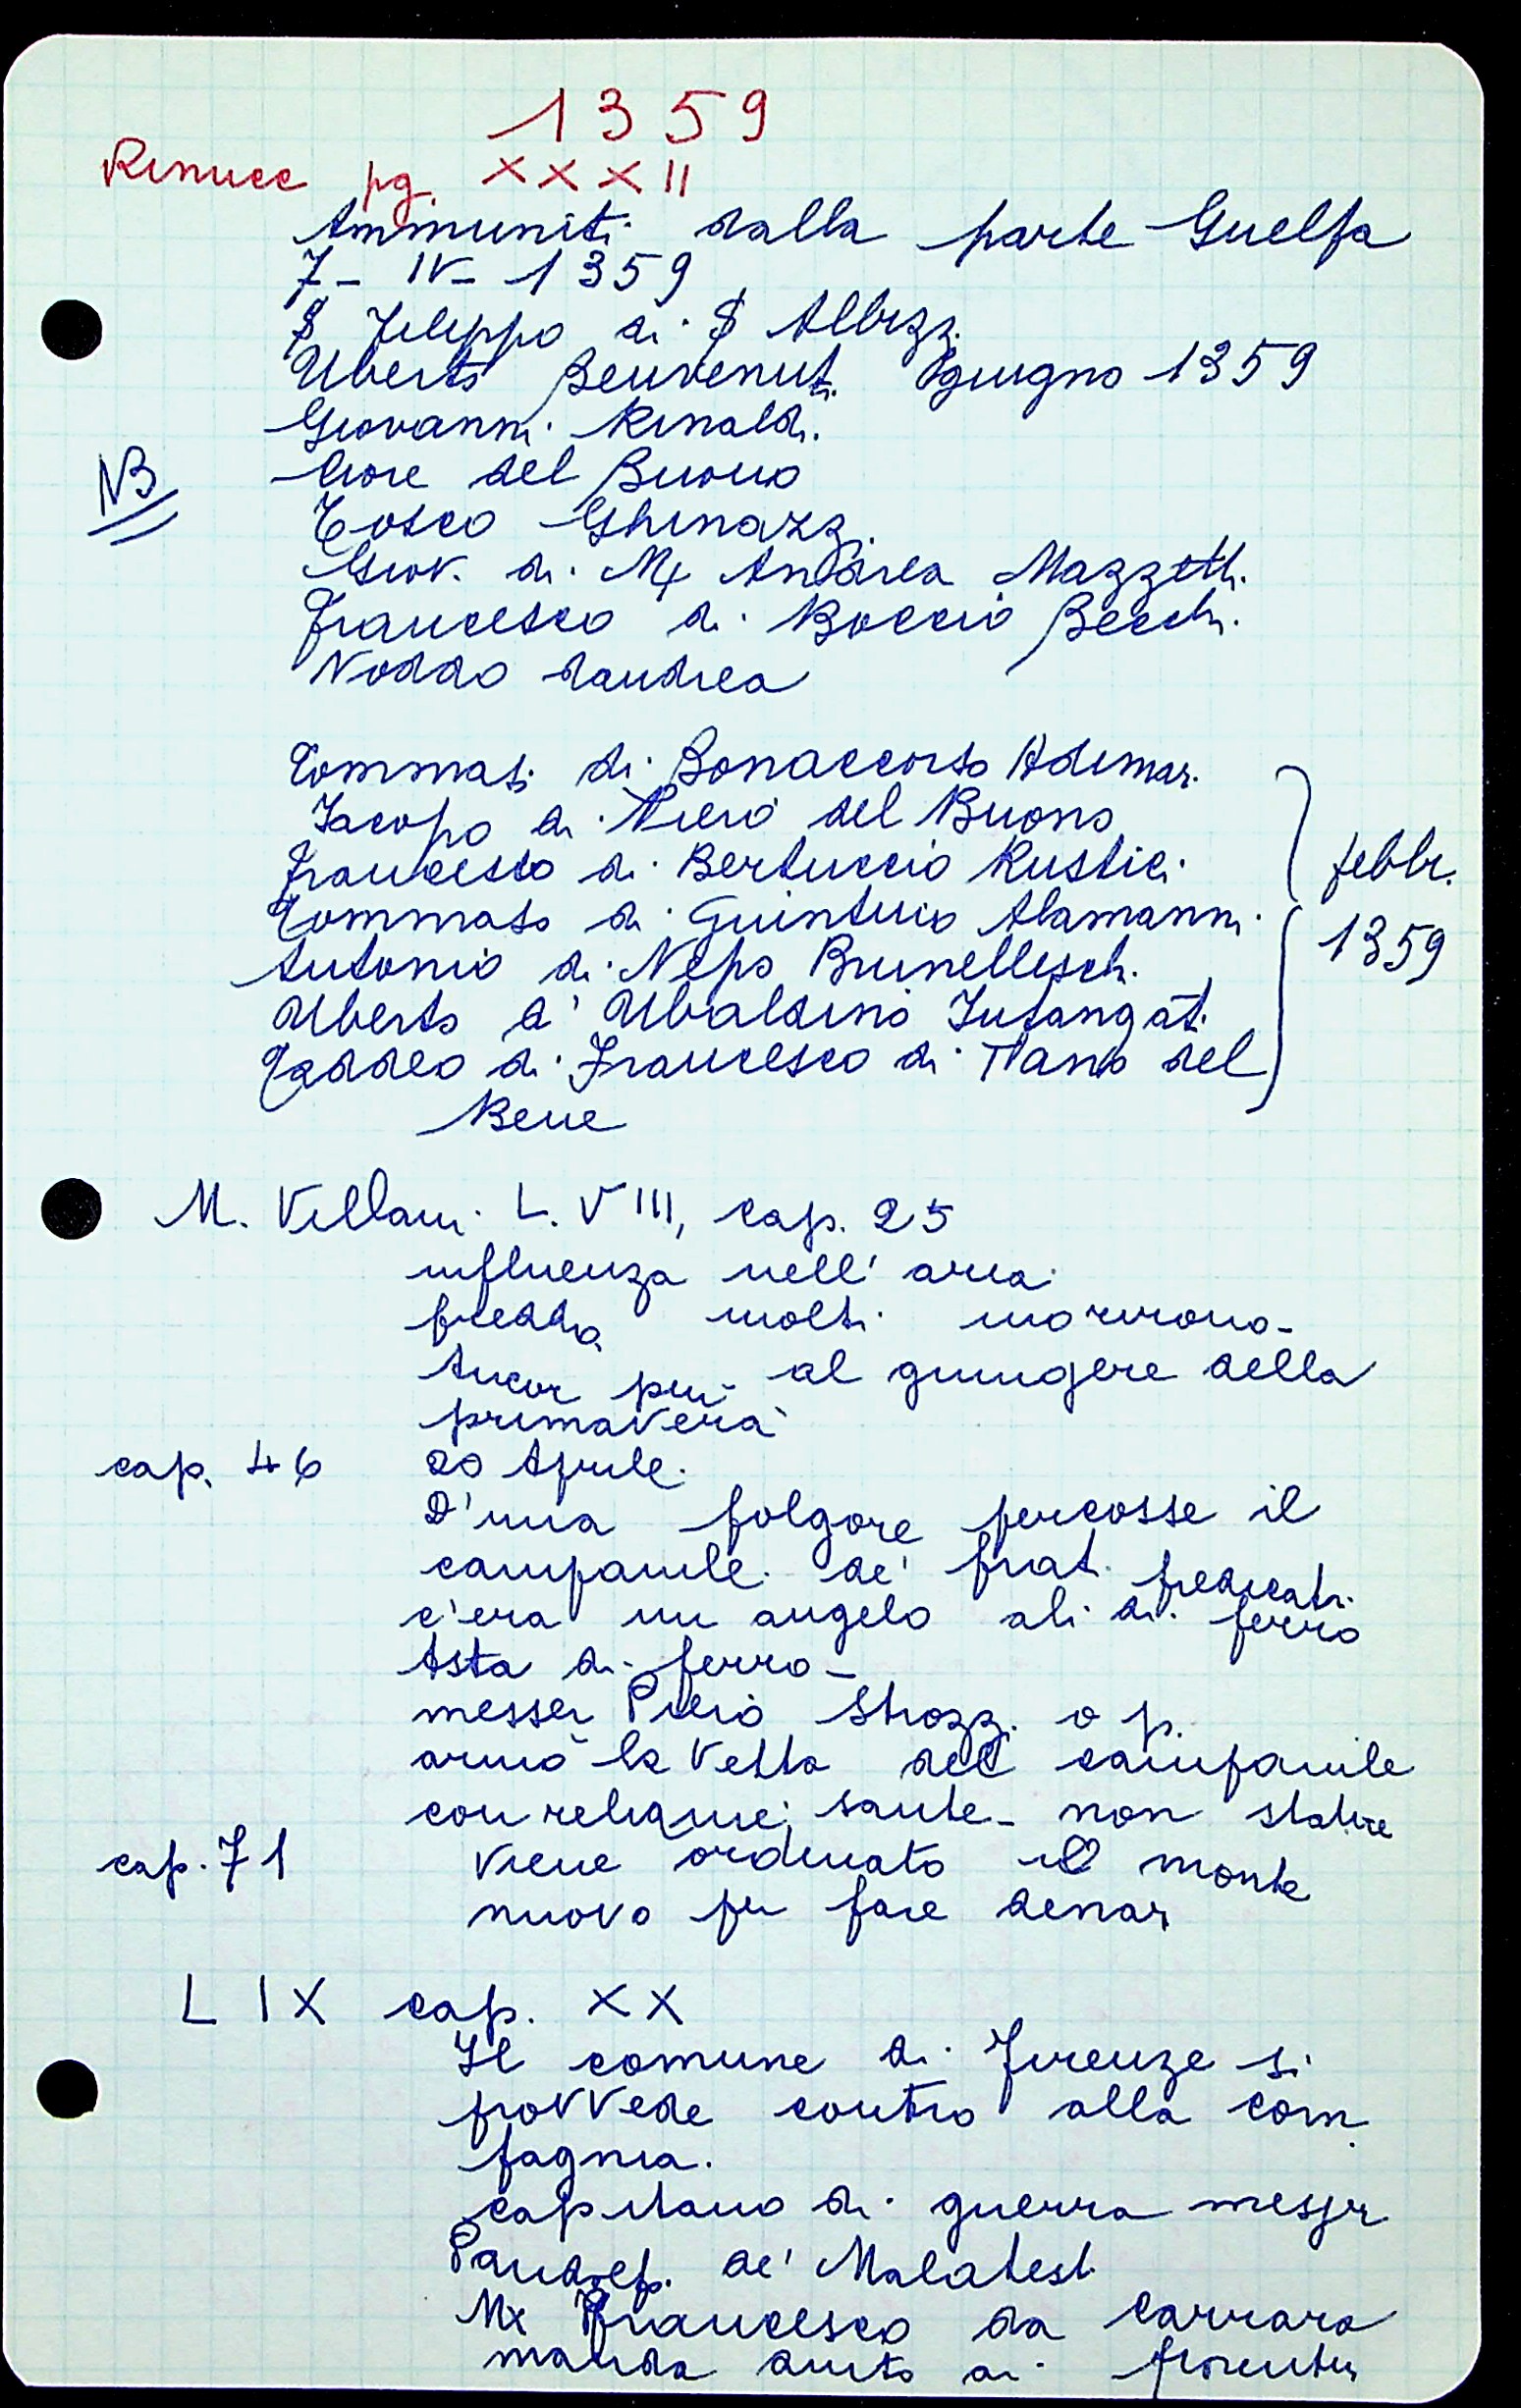 1359
Rinucc pg. XXXII
Ammuniti dalla parte Guelfa
7 - IV - 1359
S Filippo di S Albizzi
Uberto Benvenuti giugno 1359
Giovanni Rinaldi.
NB Ciore del Buono
Tosco Ghinazzi.
Giov. di M Andrea Mazzetti.
Francesco di Boccio Becchi.
Noddo dandrea
Tommasi di Bonaccorso Adimari.
Iacopo di Piero del Buono
Francesco di Bertuccio Rustici
febbr.
Tommaso di Guintuio Alamanni
Antonio di Nepo Brunelleschi.
1359
Uberto d' Ubaldino Infangati.
Taddeo di Francesco di Tano del
Bene
M. Villani L. VIII, cap. 25
influenza nell' aria
fredda molti morirono -
Ancor più al giungere della
primavera
cap. 46 20 Aprile.
D'una folgore percosse il
campanile de' frati predicati.
c'era un angelo ali di ferro
Asta di ferro -
messer Piero Strozzi o p.
armò la vetta del campanile
con reliquie sante - non statue
cap. 71 viene ordinato il monte
nuovo per fare denar
L IX cap. XX
Il comune di Firenze si
provvede contro alla com
pagnia.
capitano di guerra messer
Pandolf. de' Malatesti
Mx Francesco da Carrara
manda aiuto ai fiorentin